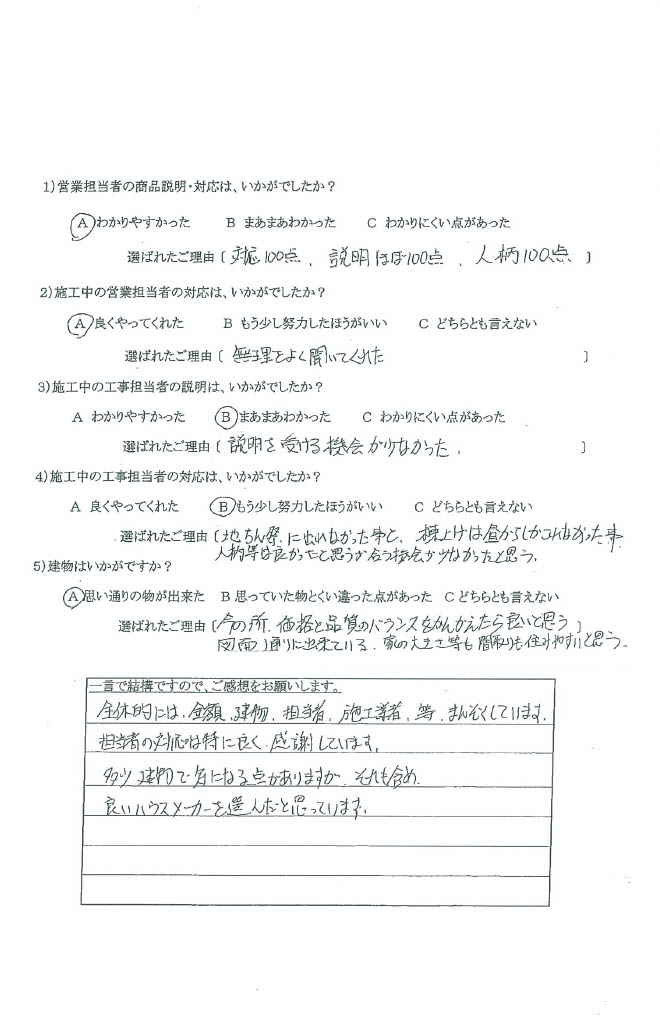 1)営業担当者の商品説明・対応は、いかがでしたか?
A わかりやすかった B まあまあわかった C わかりにくい点があった
選ばれたご理由〔 対応100点、説明ほぼ100点、人柄100点 〕
2)施工中の営業担当者の対応は、いかがでしたか?
A 良くやってくれた B もう少し努力したほうがいい C どちらとも言えない
選ばれたご理由〔 無理をよく聞いてくれた 〕
3)施工中の工事担当者の説明は、いかがでしたか?
A わかりやすかった B まあまあわかった C わかりにくい点があった
選ばれたご理由〔 説明を受ける機会が少なかった。 〕
4)施工中の工事担当者の対応は、いかがでしたか?
A 良くやってくれた B もう少し努力したほうがいい C どちらとも言えない
選ばれたご理由〔 地ちん祭に出いなかった事と、棟上げは昼からしかこれなかった事
人柄等は良かったと思うが会う機会が少なかったと思う。
5)建物はいかがですか?
A 思い通りの物が出来た B 思っていた物とくい違った点があった C どちらとも言えない
選ばれたご理由〔 今の所、価格と品質のバランスをかんがえたら良いと思う
図面通りに出来ている。家の大きさ等も間取りも住みやすいと思う。
一言で結構ですので、ご感想をお願いします。
全体的には、金額、建物、担当者、施工業者、等、まんぞくしています。
担当者の対応は特に良く、感謝しています。
多少建物で気になる点がありますが、それも含め、
良いハウスメーカーを選んだと思っています。